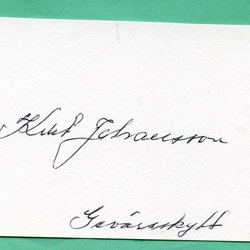 Kurt Johansson
Gevärsskytt